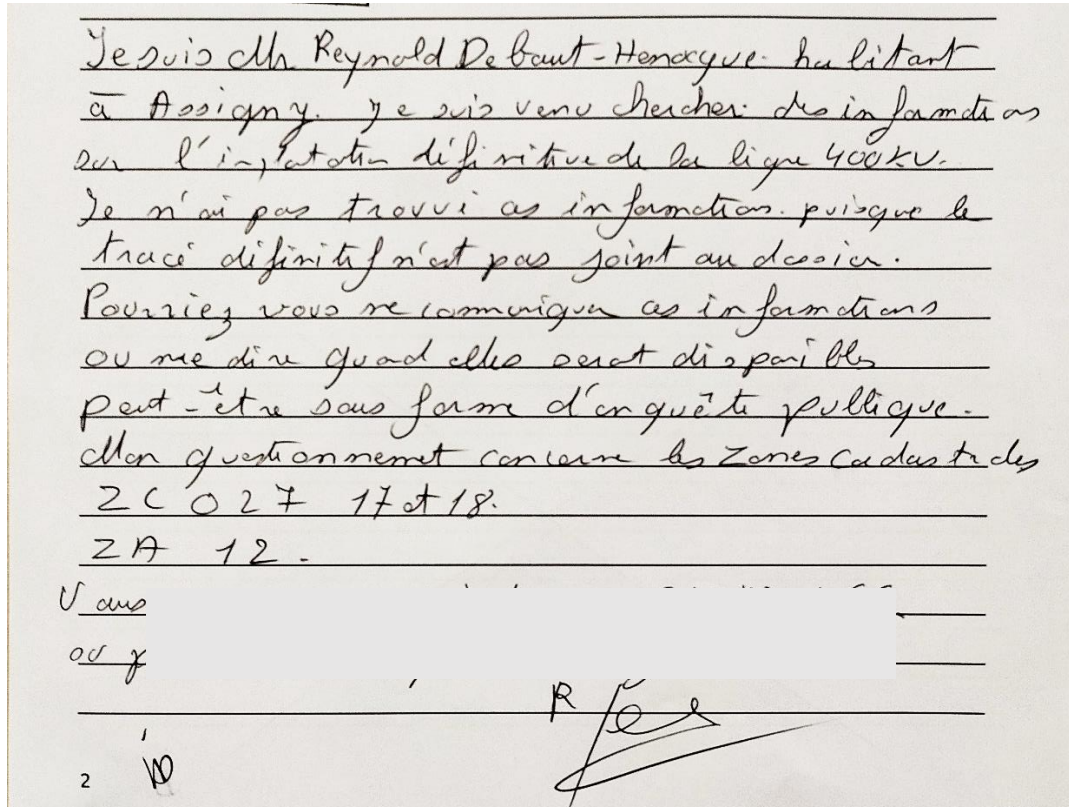 Je suis Mr Reynold Debaut-Henocque habitant
à Assigny. Je suis venu chercher des informations
sur l'implatation définitive de la ligne 400KV.
Je n'ai pas trouvé ces informations puisque le
tracé définitif n'est pas joint au dossier.
Pourriez vous me communiquer ces informations
ou me dire quad elles serot disponibles
peut-être sous forme d'enquête publique.
Mon questionnement concerne les zones cadastrales
ZC 027 17 et 18.
ZA 12.
Vous
ou
R
2